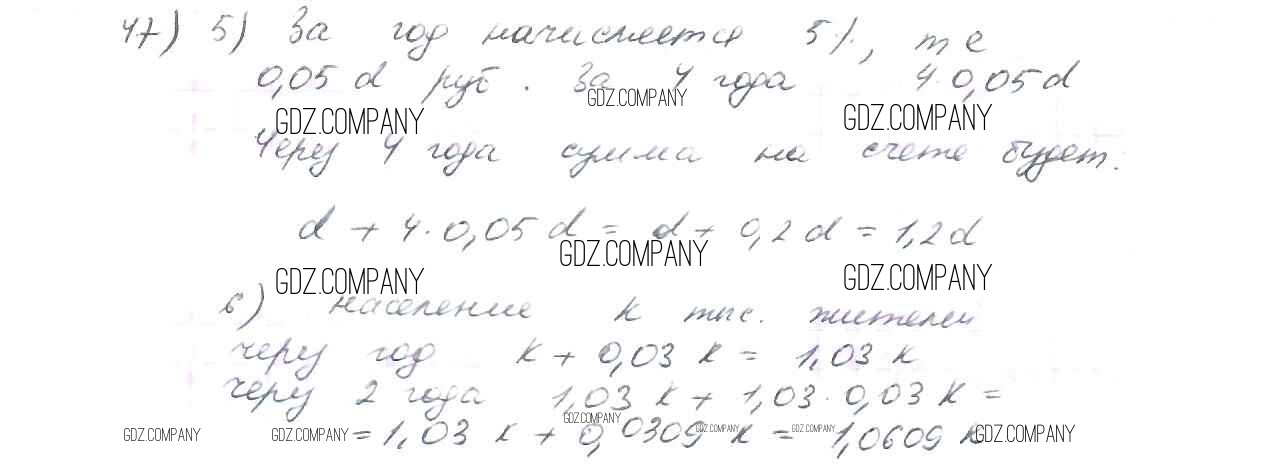 47) 5) За год начисляется 5%, т е
0,05 d руб. За 4 года 4·0,05d
GDZ.COMPANY
GDZ.COMPANY GDZ.COMPANY
Через 4 года сумма на счете будет:
d + 4·0,05 d = d + 0,2 d = 1,2d
GDZ.COMPANY
GDZ.COMPANY GDZ.COMPANY
6) население k тыс. жителей
через год k + 0,03 k = 1,03 k
через 2 года 1,03 k + 1,03·0,03 k =
GDZ.COMPANY
= 1,03 k + 0,0309 k = 1,0609 k
GDZ.COMPANY GDZ.COMPANY GDZ.COMPANY GDZ.COMPANY GDZ.COMPANY